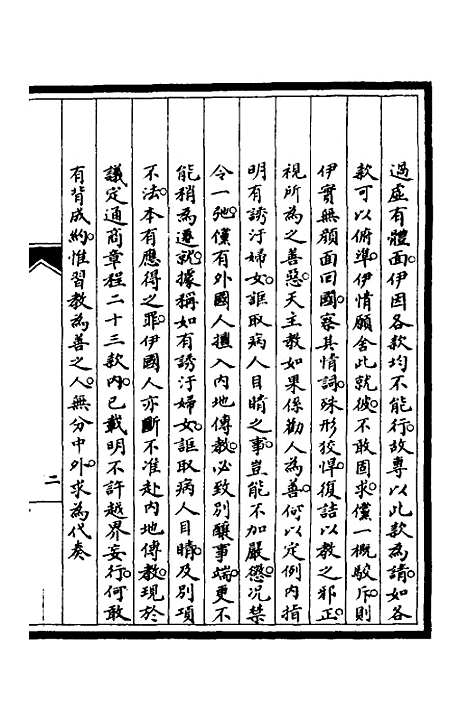 過虛有體面伊因各款均不能行故專以此款為請如各
款可以俯準伊情願舍此就彼不敢固求僅一概駁斥則
伊實無顏面回國察其情詞殊形狡悍復詰以教之邪正
視所為之善惡天主教如果係勸人為善何以定例內指
明有誘汙婦女誆取病人目睛之事豈能不加嚴懲況禁
令一弛僅有外國人擅入內地傳教必致別釀事端更不
能稍為遷就據稱如有誘汙婦女誆取病人目睛及別項
不法本有應得之罪伊國人亦斷不准赴內地傳教現於
議定通商章程二十三款內已載明不許越界妄行何敢
有背成約惟習教為善之人無分中外求為代奏
二